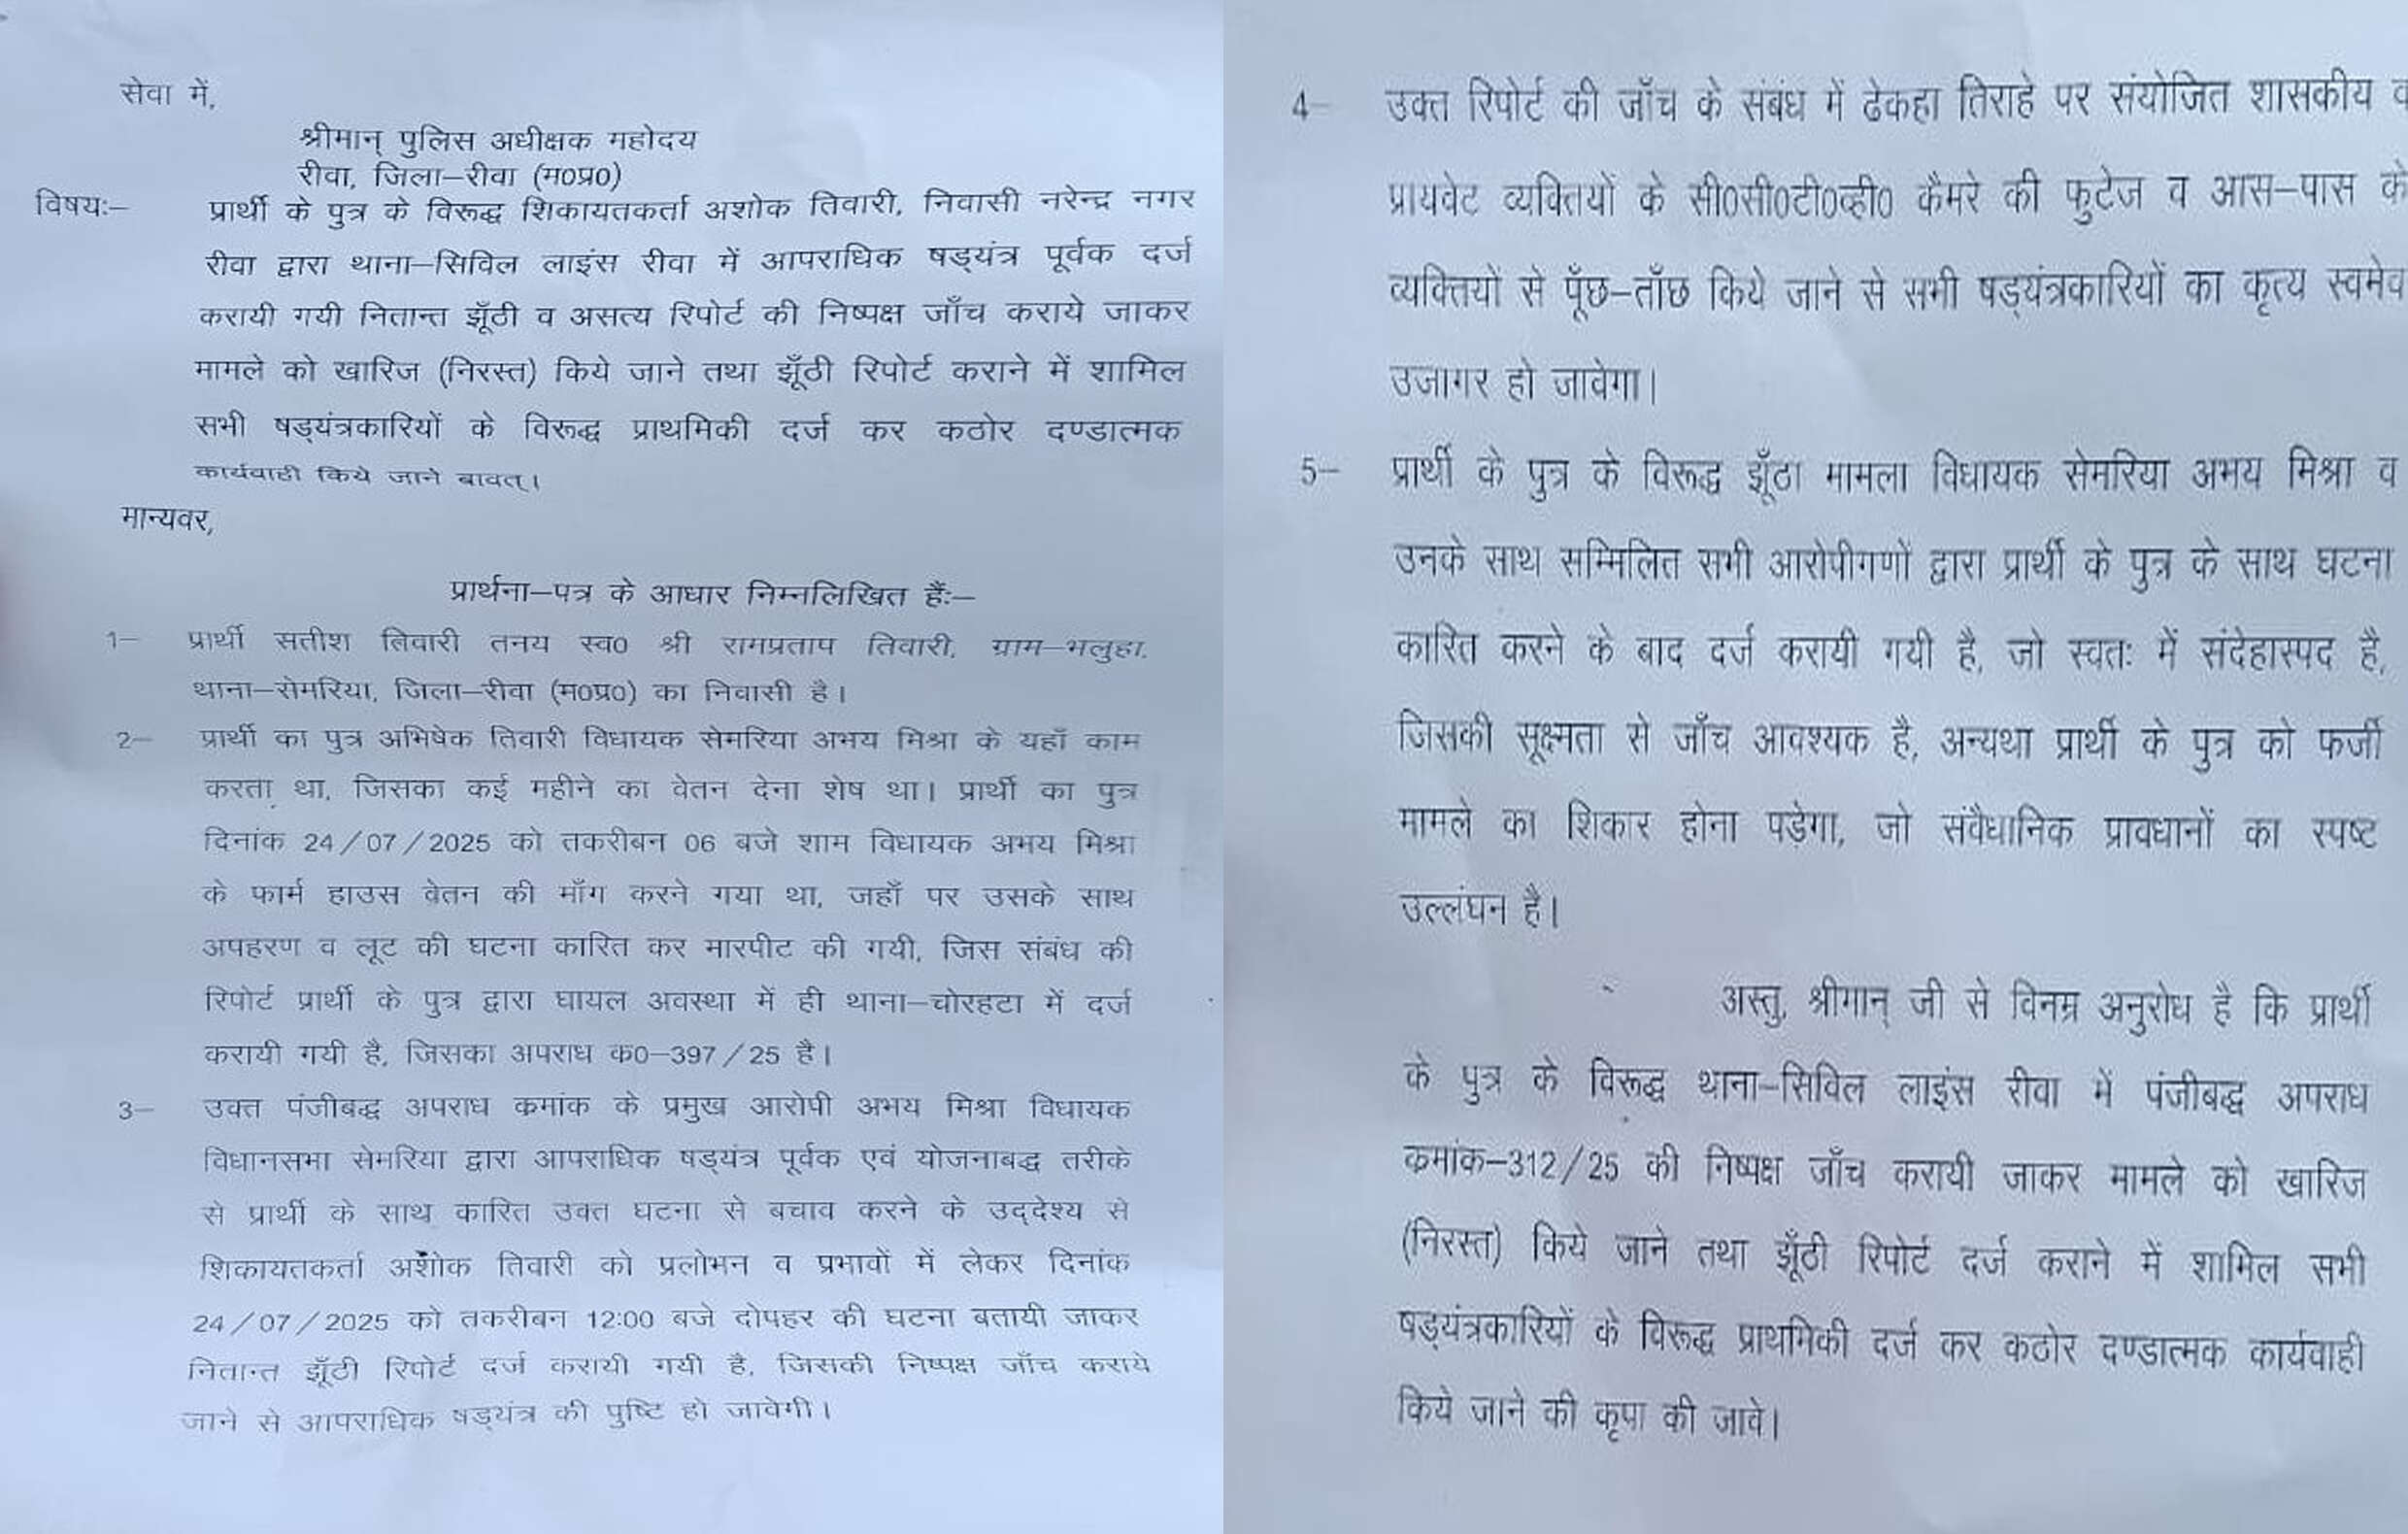 सेवा में,
श्रीमान् पुलिस अधीक्षक महोदय
रीवा, जिला–रीवा (म0प्र0)
विषयः– प्रार्थी के पुत्र के विरूद्ध शिकायतकर्ता अशोक तिवारी, निवासी नरेन्द्र नगर
रीवा द्वारा थाना–सिविल लाइंस रीवा में आपराधिक षड्यंत्र पूर्वक दर्ज
करायी गयी नितान्त झूँठी व असत्य रिपोर्ट की निष्पक्ष जाँच कराये जाकर
मामले को खारिज (निरस्त) किये जाने तथा झूँठी रिपोर्ट कराने में शामिल
सभी षड्यंत्रकारियों के विरूद्ध प्राथमिकी दर्ज कर कठोर दण्डात्मक
कार्यवाही किये जाने बावत्।
मान्यवर,
प्रार्थना–पत्र के आधार निम्नलिखित हैंः–
1– प्रार्थी सतीश तिवारी तनय स्व0 श्री रामप्रताप तिवारी, ग्राम–भलुहा,
थाना–सेमरिया, जिला–रीवा (म0प्र0) का निवासी है।
2– प्रार्थी का पुत्र अभिषेक तिवारी विधायक सेमरिया अभय मिश्रा के यहाँ काम
करता था, जिसका कई महीने का वेतन देना शेष था। प्रार्थी का पुत्र
दिनांक 24/07/2025 को तकरीबन 06 बजे शाम विधायक अभय मिश्रा
के फार्म हाउस वेतन की माँग करने गया था, जहाँ पर उसके साथ
अपहरण व लूट की घटना कारित कर मारपीट की गयी, जिस संबंध की
रिपोर्ट प्रार्थी के पुत्र द्वारा घायल अवस्था में ही थाना–चोरहटा में दर्ज
करायी गयी है, जिसका अपराध क0–397/25 है।
3– उक्त पंजीबद्ध अपराध कमांक के प्रमुख आरोपी अभय मिश्रा विधायक
विधानसभा सेमरिया द्वारा आपराधिक षड्यंत्र पूर्वक एवं योजनाबद्ध तरीके
से प्रार्थी के साथ कारित उक्त घटना से बचाव करने के उद्देश्य से
शिकायतकर्ता अशोक तिवारी को प्रलोभन व प्रभावों में लेकर दिनांक
24/07/2025 को तकरीबन 12:00 बजे दोपहर की घटना बतायी जाकर
नितान्त झूँठी रिपोर्ट दर्ज करायी गयी है, जिसकी निष्पक्ष जाँच कराये
जाने से आपराधिक षड्यंत्र की पुष्टि हो जावेगी।
4– उक्त रिपोर्ट की जाँच के संबंध में ढेकहा तिराहे पर संयोजित शासकीय
प्रायवेट व्यक्तियों के सी0सी0टी0व्ही0 कैमरे की फुटेज व आस–पास के
व्यक्तियों से पूँछ–ताँछ किये जाने से सभी षड्यंत्रकारियों का कृत्य स्वमेव
उजागर हो जावेगा।
5– प्रार्थी के पुत्र के विरूद्ध झूँठा मामला विधायक सेमरिया अभय मिश्रा व
उनके साथ सम्मिलित सभी आरोपीगणों द्वारा प्रार्थी के पुत्र के साथ घटना
कारित करने के बाद दर्ज करायी गयी है, जो स्वतः में संदेहास्पद है,
जिसकी सूक्ष्मता से जाँच आवश्यक है, अन्यथा प्रार्थी के पुत्र को फर्जी
मामले का शिकार होना पड़ेगा, जो संवैधानिक प्रावधानों का स्पष्ट
उल्लंघन है।
अस्तु, श्रीमान् जी से विनम्र अनुरोध है कि प्रार्थी
के पुत्र के विरूद्ध थाना–सिविल लाइंस रीवा में पंजीबद्ध अपराध
कमांक–312/25 की निष्पक्ष जाँच करायी जाकर मामले को खारिज
(निरस्त) किये जाने तथा झूँठी रिपोर्ट दर्ज कराने में शामिल सभी
षड्यंत्रकारियों के विरूद्ध प्राथमिकी दर्ज कर कठोर दण्डात्मक कार्यवाही
किये जाने की कृपा की जावे।